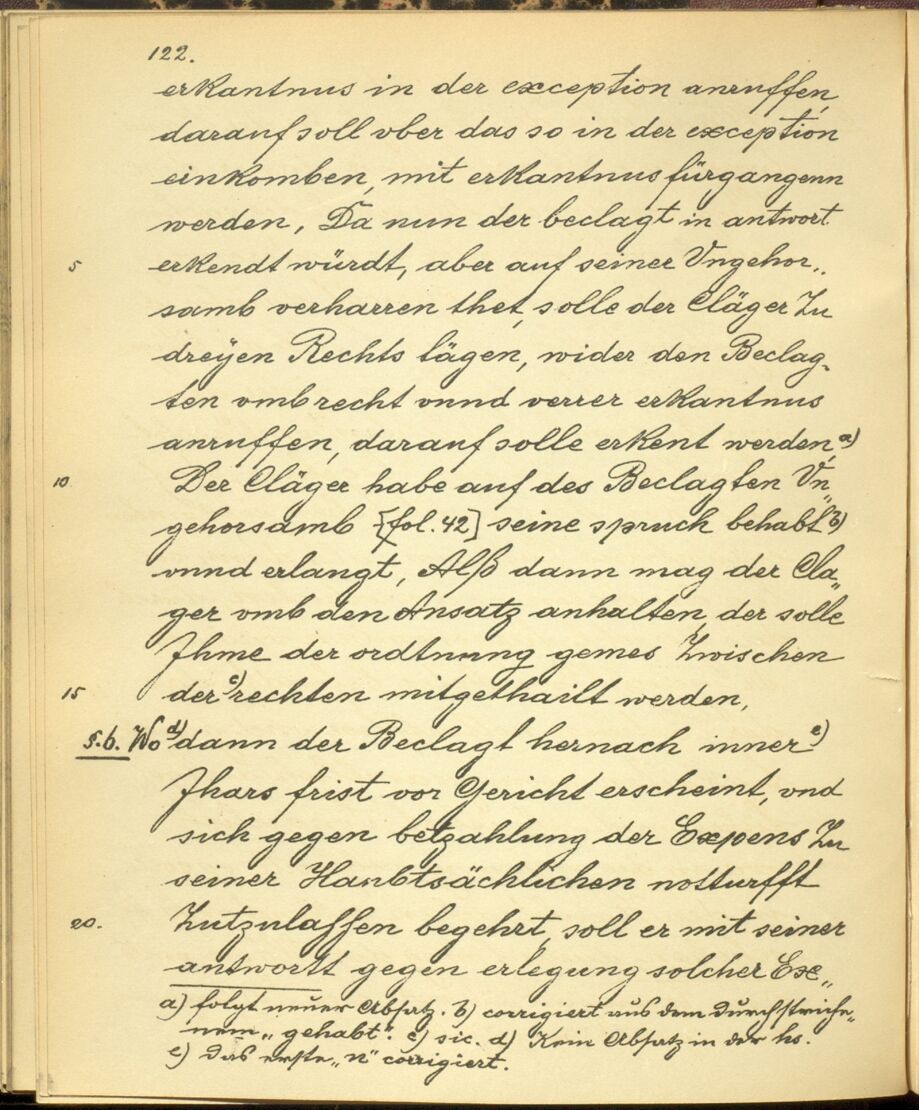 122.
erkantnus in der exception anruffen,
darauf soll vber das so in der exception
einkomben, mit erkantnus fürgangenn
werden, Da nun der beclagt in antwort
5 erkendt würdt, aber auf seiner Vngehor„
samb verharren thet, solle der Cläger Zu
dreÿen Rechts tägen, wider den Beclag„
ten vmb recht vnnd verrer erkantnus
anruffen, darauf solle erkent werden,a)
10 Der Cläger habe auf des Beclagten Vn„
gehorsamb [fol. 42] seine spruch behabt b)
vnnd erlangt, Alß dann mag der Cla„
ger vmb den Ansatz anhalten, der solle
Ihme der ordtnung gemes Zwischen
15 der c) rechten mitgethailt werden,
§.6. Wo d) dann der Beclagt hernach inner e)
Jhars frist vor Gericht erscheint, vnd
sich gegen betzahlung der Expens Zu
seiner Haubtsächlichen notturfft
20. Zutzulassen begehrt, soll er mit seiner
antwortt gegen erlegung solcher Ex„
a) folgt neuer Absatz. b) corrigiert aus dem durchstriche„
nem „gehabt“. c) sic. d) Kein Absatz in der hs.
e) das erste „n“ corrigiert.